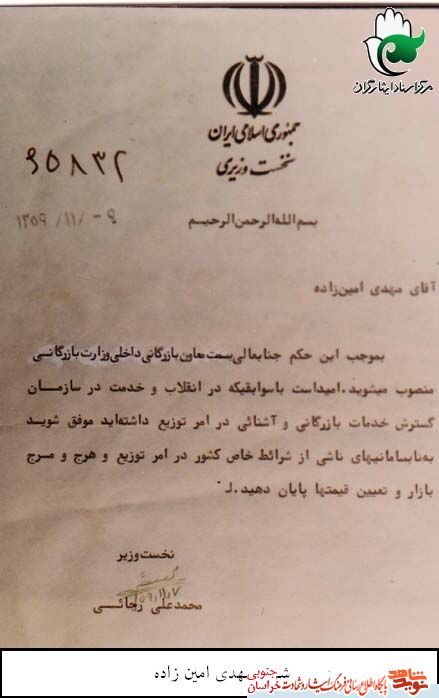 مرکز اسناد ایثارگران
جمهوری اسلامی ایران
نخست وزیری
۶۵۸۳۲
۱۳۵۹/۱۱/-۹
بسم الله الرحمن الرحیم
آقای مهدی امین‌زاده
بموجب این حکم جنابعالی بسمت معاون بازرگانی داخلی وزارت بازرگانی
منصوب میشوید. امیداست باسوابقیکه در انقلاب و خدمت در سازمان
گسترش خدمات بازرگانی و آشنائی در امر توزیع داشته‌اید موفق شوید
به‌نابسامانیهای ناشی از شرائط خاص کشور در امر توزیع و هرج و مرج
بازار و تعیین قیمتها پایان دهید. لـ
نخست وزیر
۵۹/۱۱/۷
محمدعلی رجائی
مهدی امین زاده
نوید شاهد
خراسان جنوبی
پایگاه اطلاع رسانی فرهنگ ایثار و شهادت